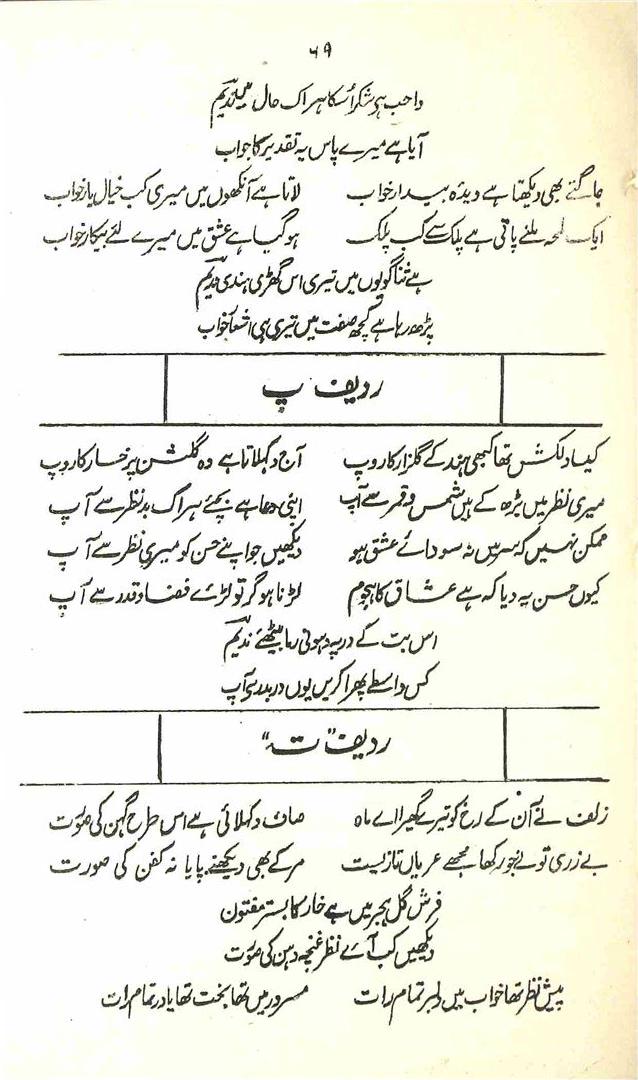 ۶۹
واجب ہے شکر اُسکا ہر اک حال میں ندیم
آیا ہے میرے پاس یہ تقدیر کا جواب
جاگتے بھی دیکھتا ہے دیدہ بیدار خواب لاتا ہے آنکھوں میں میری کب خیالِ یار خواب
ایک لمحہ ملنے پاتی ہے پلک سے کب پلک ہو گیا ہے عشق میں میرے لئے بیکار خواب
ہے ثنا گویوں میں تیری اس گھڑی ہندی ندیم
پڑھ رہا ہے کچھ صفت میں تیری ہی اشعار خواب
ردیف پ
کیسا دلکش تھا کبھی ہند کے گلزار کا روپ آج دکہلاتا ہے وہ گلشن پرخسار کا روپ
میری نظر میں بڑھ کے ہیں شمس و قمر سے آپ اپنی دعا ہے بچئے ہر اک بد نظر سے آپ
ممکن نہیں کہ سر میں نہ سودائے عشق ہو دیکھیں جو اپنے حسن کو میری نظر سے آپ
کیوں حسن پہ دیا کہ ہے عشاق کا ہجوم لڑنا ہو گر تو لڑئے قضا و قدر سے آپ
اس بت کے در پہ دہونی رما بیٹھئے ندیم
کس واسطے پھرا کریں یوں دربدر سے آپ
ردیف "ت"
زلف نے آن کے رخ کو تیرے گھیرا اے ماہ صاف دکہلائی ہے اس طرح گہن کی صورت
بے زری تو نے جو رکھا مجھے عریاں تا زیست مر کے بھی دیکھنے پایا نہ کفن کی صورت
فرش گل ہجر میں ہے خار کا بستر مفتون
دیکھیں کب آئے نظر غنچہ دہن کی صورت
پیش نظر تھا خواب میں دلبر تمام رات مسرور میں تھا بخت تھا یاور تمام رات